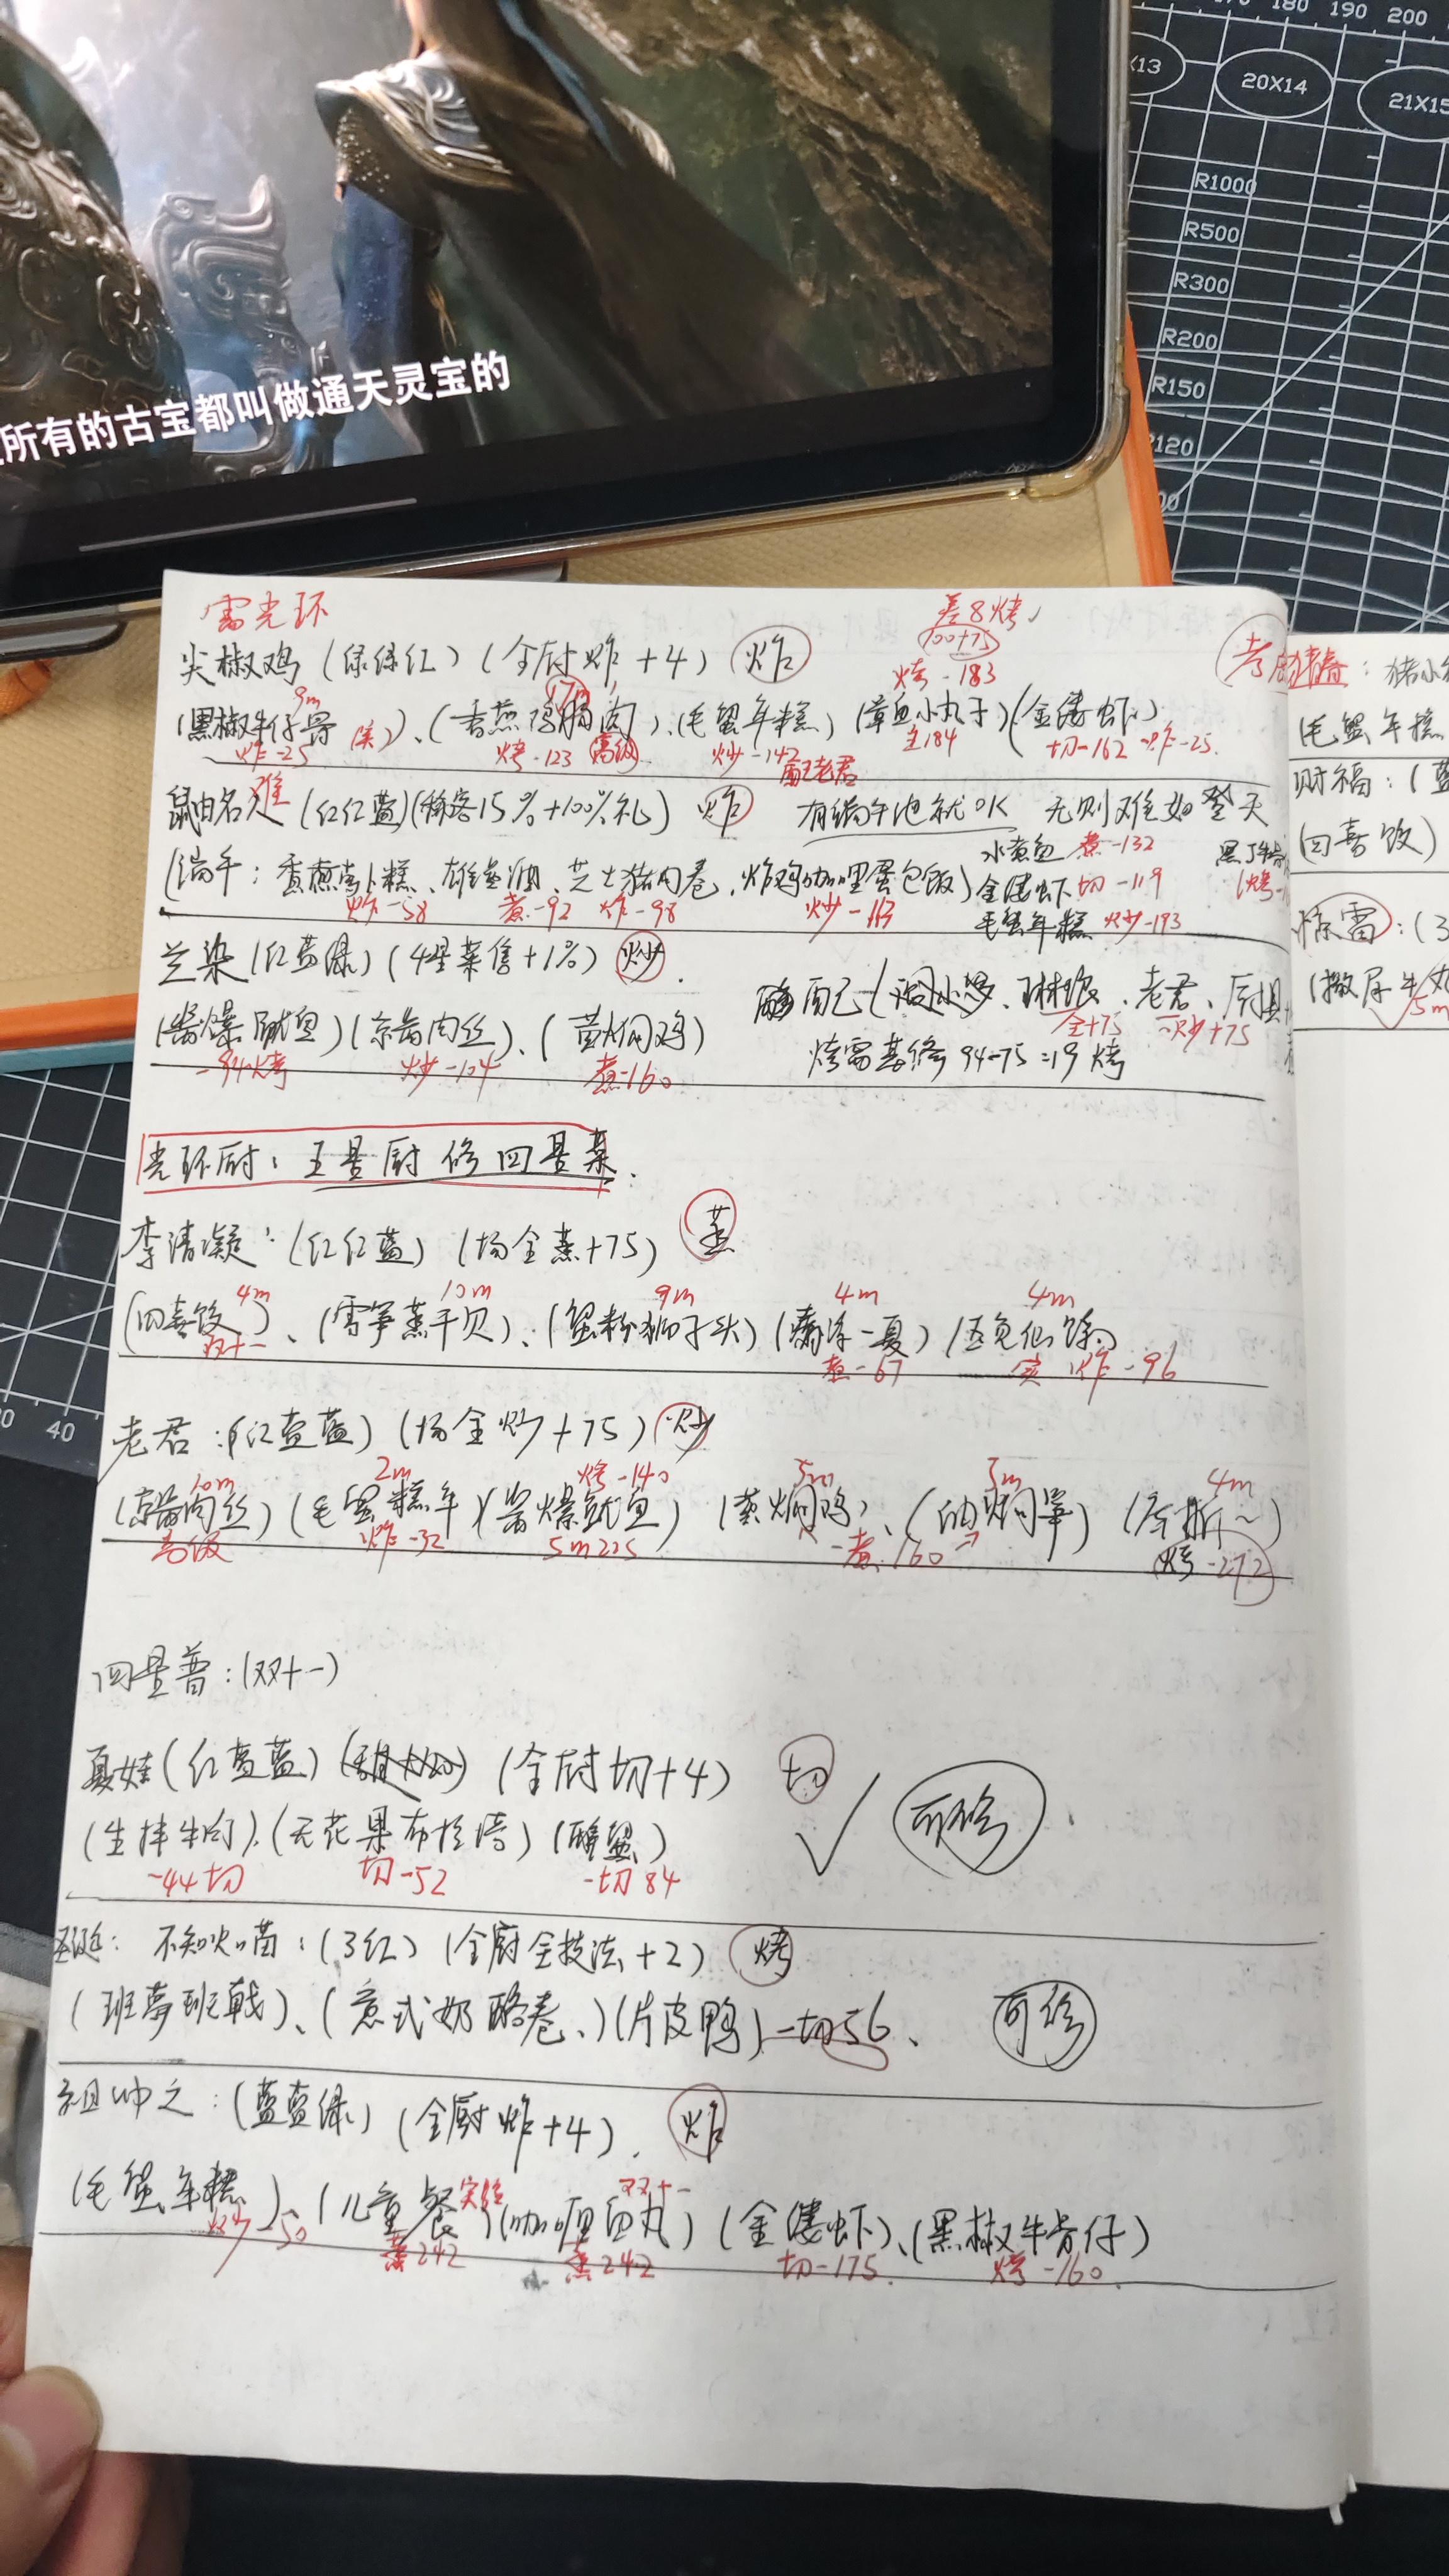 所有的古宝都叫做通天灵宝的
170 180 190 200
X13 20X14 21X15
R1000
R500
R300
R200
R150
120
40
雷光环
差8烤
100+75
烤-183
尖椒鸡(绿绿红)(全厨炸+4) 炸
9m
(黑椒牛仔骨)、(香煎鸡胸肉)、(毛蟹年糕)(章鱼小丸子)(金缕虾)
炸-25 烤-123 高级 炒-142 184 切-162 炸-25
难 老君
(红红蓝)(稀客15%+100%礼) 炸 有端午池就OK 无则难如登天
(端午:香煎萝卜糕、雄黄酒、芝士猪肉卷、炸鸡咖喱蛋包饭)
炸-58 煮-92 炸-98 炒-113
水煮鱼 煮-132
金缕虾 切-119
毛蟹年糕 炒-193
兰染(红蓝绿)(4星菜售+1%) 炒
(酱爆鱿鱼)(京酱肉丝)、(黄焖鸡)
-94烤 炒-104 煮-160
老君、厨娘
全+75 炒+75
94-75=19烤
光环厨:五星厨修四星菜
李清凝:(红红蓝)(场全蒸+75) 蒸
4m 10m 9m 4m 4m
(四喜饺)、(雪笋蒸干贝)、(蟹粉狮子头)(一夏)
双十一 煮-67 炸-96
老君:(红蓝蓝)(场全炒+75) 炒
10m 2m 烤-140 5m 5m 4m
(京酱肉丝)(毛蟹糕年)(酱爆鱿鱼)(黄焖鸡)、(油焖笋)
高级 炸-32 5m225 -煮160 烤-272
四星普:(双十一)
夏娃(红蓝蓝)(全厨切+4) 切
(生拌牛肉)、(无花果布拉塔)(醉蟹) 可修
-44切 切-52 -切84
圣诞:不知火苗:(3红)(全厨全技法+2) 烤
(班尊班戟)、(意式奶酪卷、)(片皮鸭)-切56、 可修
祖冲之:(蓝蓝绿)(全厨炸+4) 炸
(毛蟹年糕)、(儿童餐)(咖喱鱼丸)(金缕虾)、(黑椒牛骨仔)
炒-50 实验 蒸242 双十一 蒸242 切-175 烤-160
(毛蟹年糕
财福:(蓝
(四喜饺)
惊雷:(3
(撒尿牛丸
5m